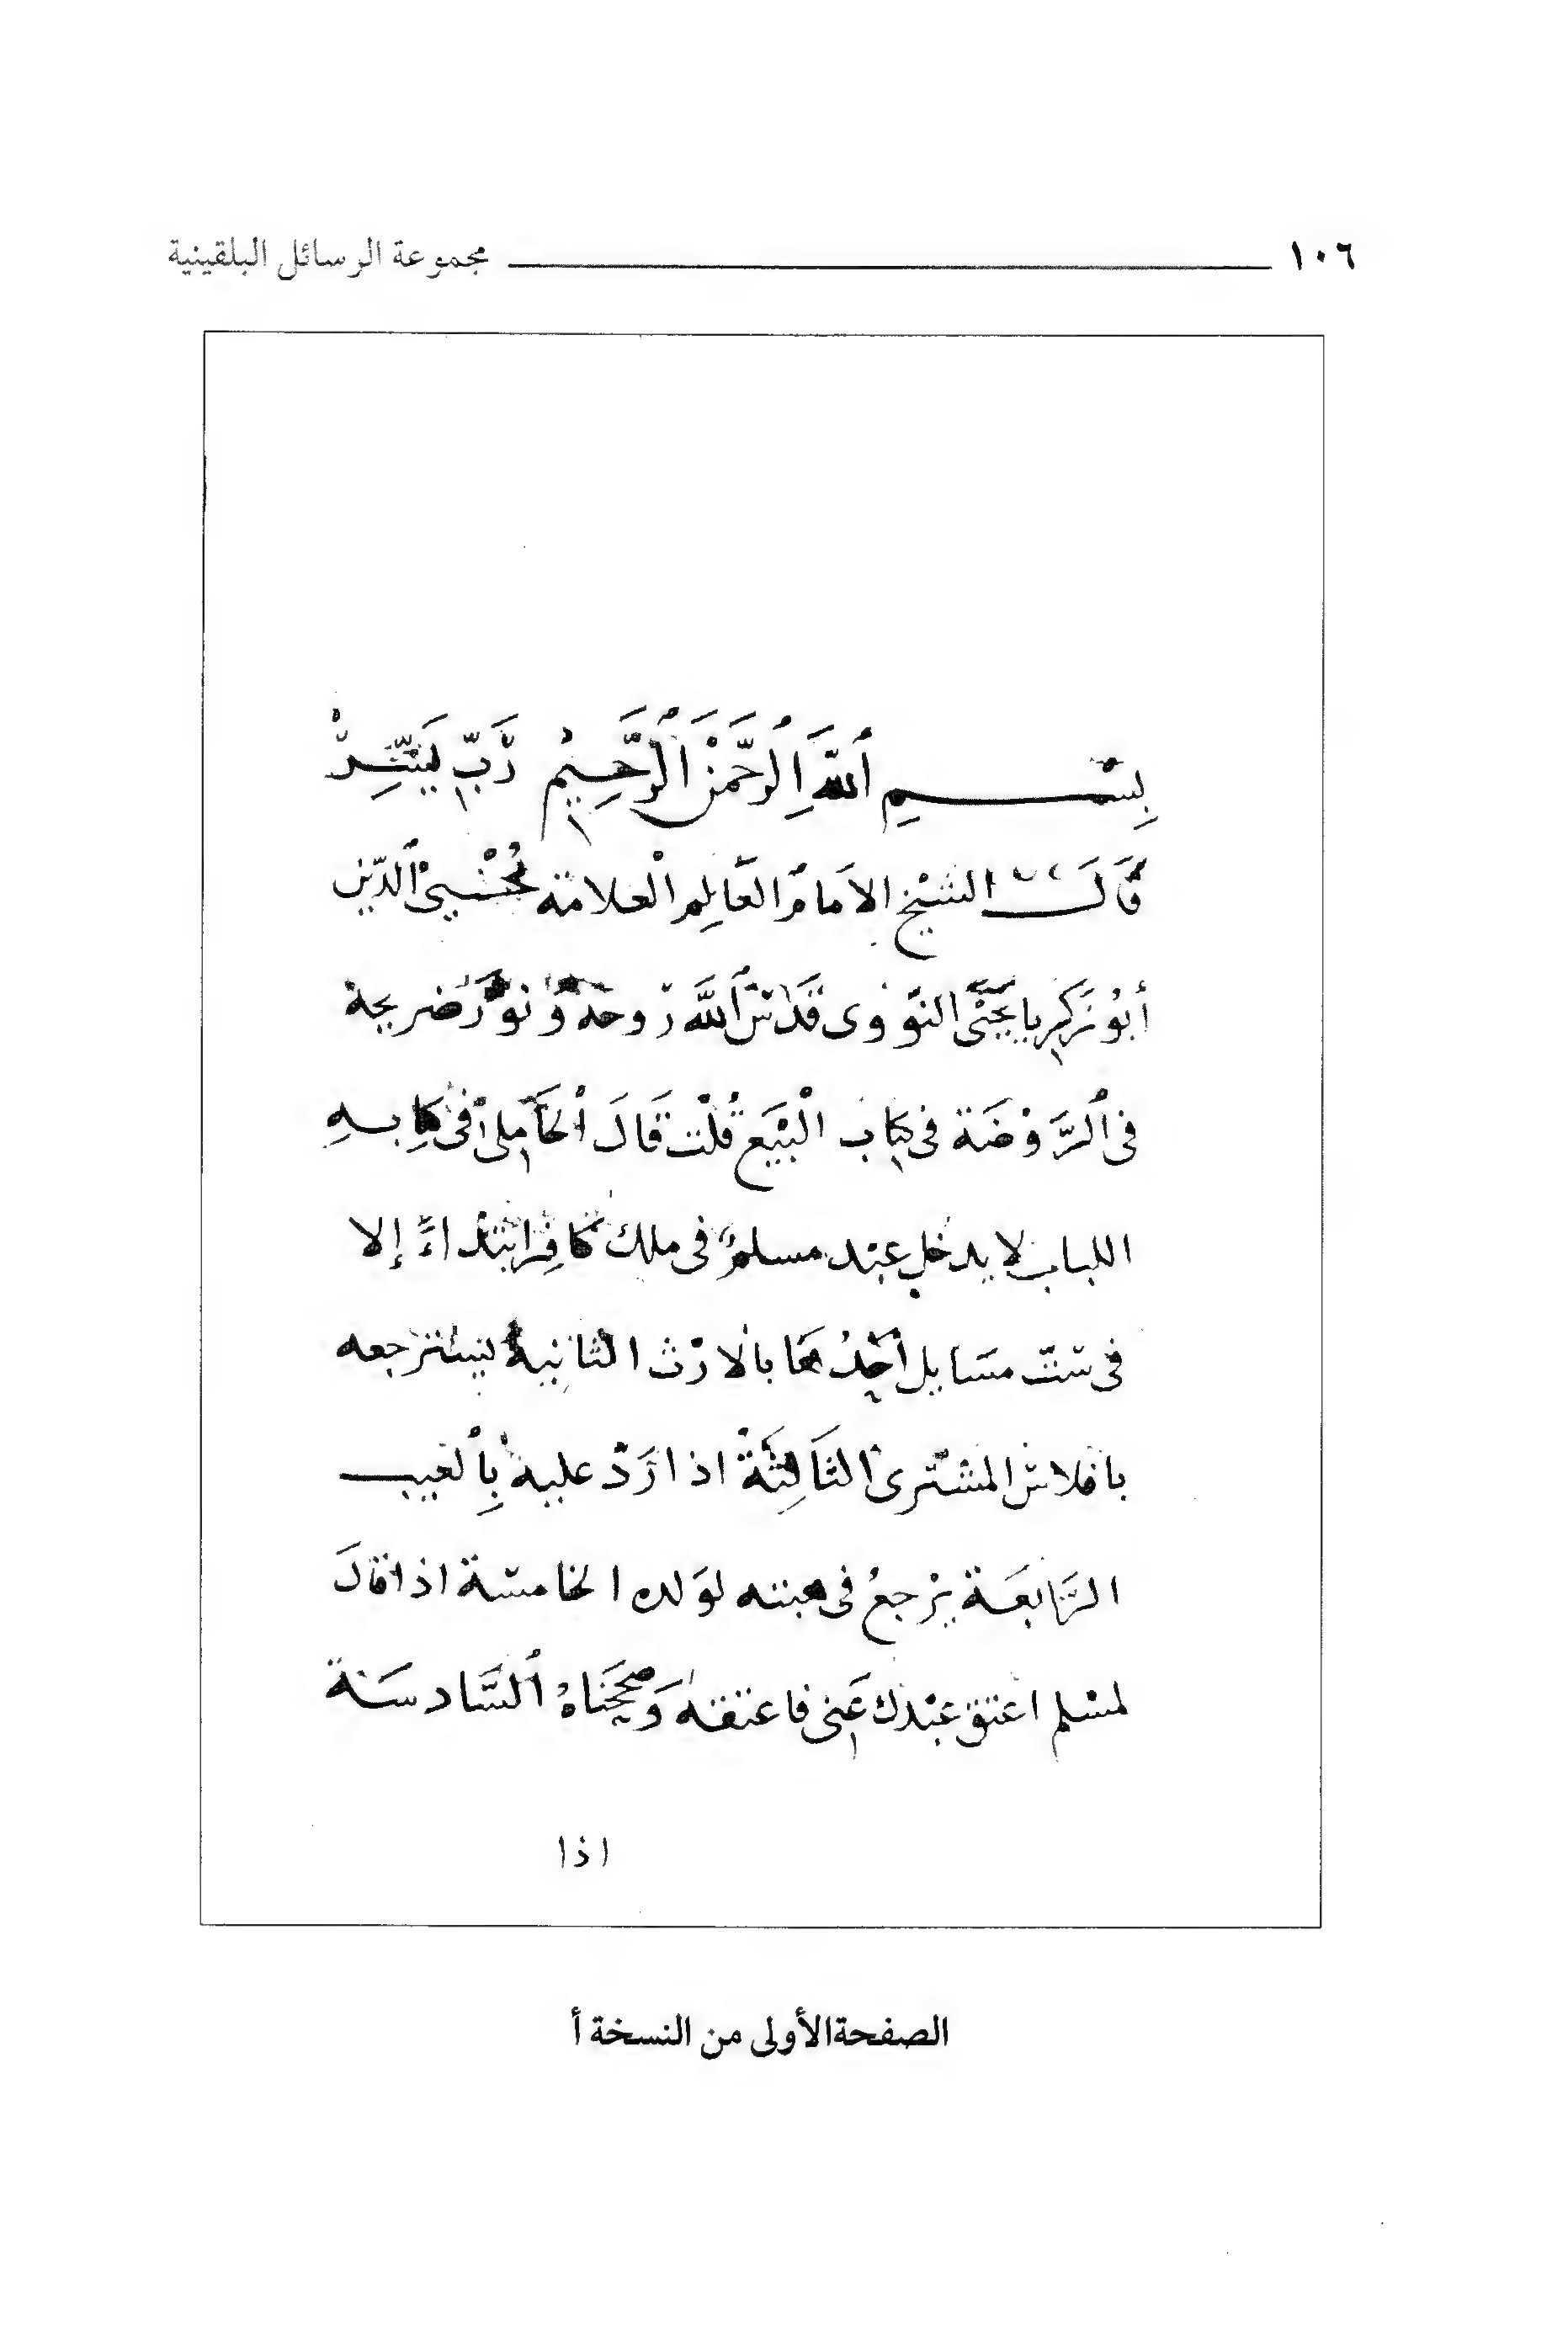 ١٠٦ مجموعة الرسائل البلقينية
بِسْمِ ٱللَّهِ ٱلرَّحْمَنِ ٱلرَّحِيمِ رَبِّ يَسِّرْ
قَالَ الشَّيْخ الاَمامُ العَالِم الْعلامَة مُحْيِيْ ٱلدِّين
أبُو زَكَرِيا يَحْيَى النَّوَوى قَدَّسَ ٱللَّه رُوحَهُ وَنَوَّرَ ضريحه
فى ٱلرَّوْضَة فى كِتاب الْبَيْع قُلْت قَالَ ٱلمحَامِلى فى كِتابِهِ
اللباب لا يدخل عبْد مسلمٌ فى ملك كافِر ابْتداءً إلا
فى ستّ مسَايل أحَدُهَا بالارْث الثانِية يسْترجعه
بافلاس المشْترى الثَالِثَة اذا رَدّ عليه بِٱلعيب
الرَّابعَة يرْجعُ فى هبته لوَلده الخامسَة اذا قالَ
لمسْلم اعتق عبْدك عَنى فاعتقه وَصَححْنَاهُ ٱلسَّادسَة
اذا
الصفحة الأولى من النسخة أ